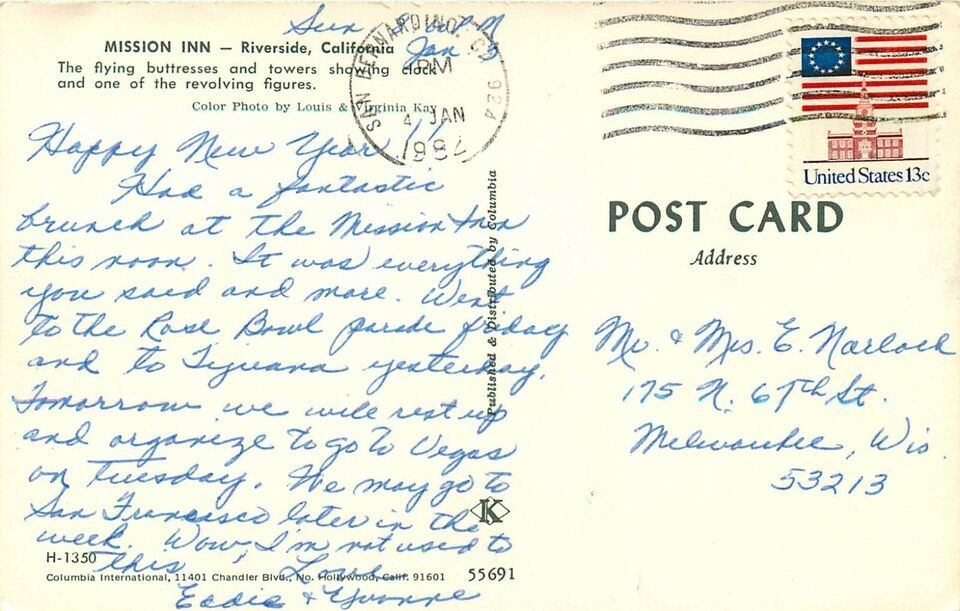 MISSION INN — Riverside, California
The flying buttresses and towers showing clock
and one of the revolving figures.
Color Photo by Louis & Virginia Kay
Sun P.M
Jan 3
Happy New Year!!
Had a fantastic
brunch at the Mission Inn
this noon. It was everything
you said and more. Went
to the Rose Bowl parade friday
and to Tijuana yesterday.
Tomorrow we will rest up
and organize to go to Vegas
on Tuesday. We may go to
San Francisco later in the
week. Wow, I'm not used to
this. Love
Eddie & Yvonne
H-1350
Columbia International, 11401 Chandler Blvd., No. Hollywood, Calif. 91601
55691
Published & Distributed by Columbia
K
SAN BERNARDINO, CA 924
PM
4 JAN
1982
United States 13c
POST CARD
Address
Mr. & Mrs. E. Narlock
175 N. 67th St.
Milwaukee, Wis.
53213